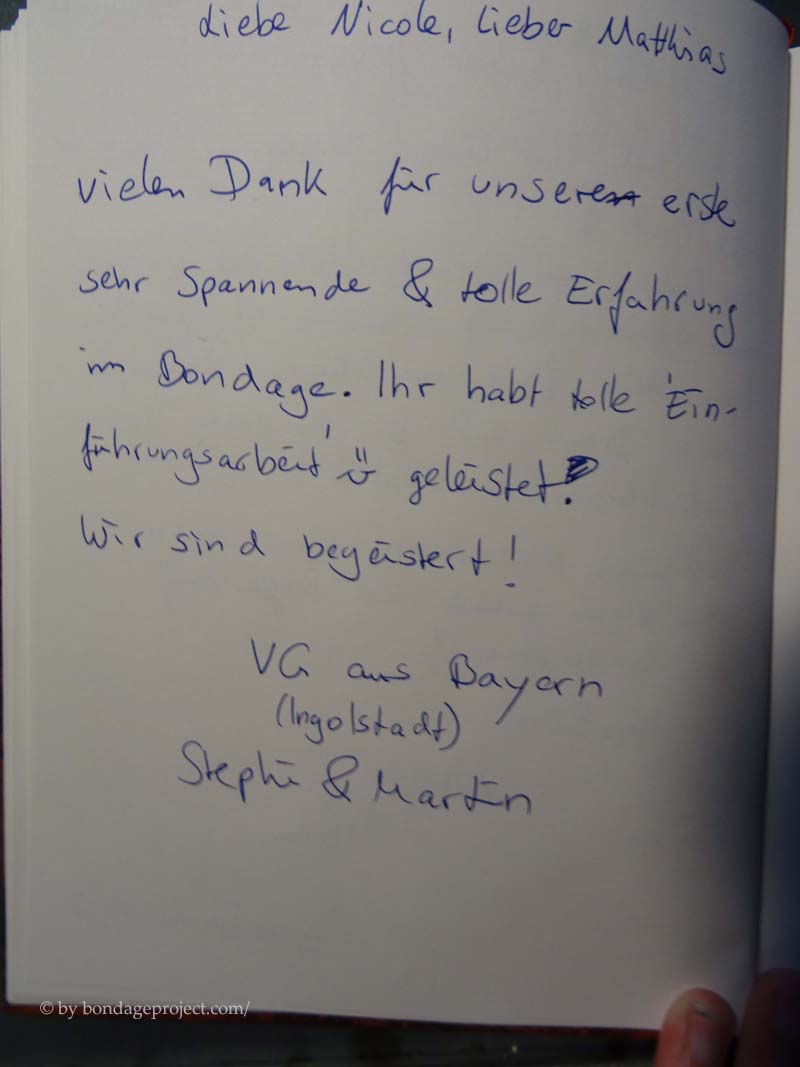 Liebe Nicole, Lieber Matthias
vielen Dank für unsere erste
sehr Spannende & tolle Erfahrung
im Bondage. Ihr habt tolle 'Ein-
führungsarbeit' ü geleistet!
Wir sind begeistert!
VG aus Bayern
(Ingolstadt)
Stephi & Martin
© by bondageproject.com/